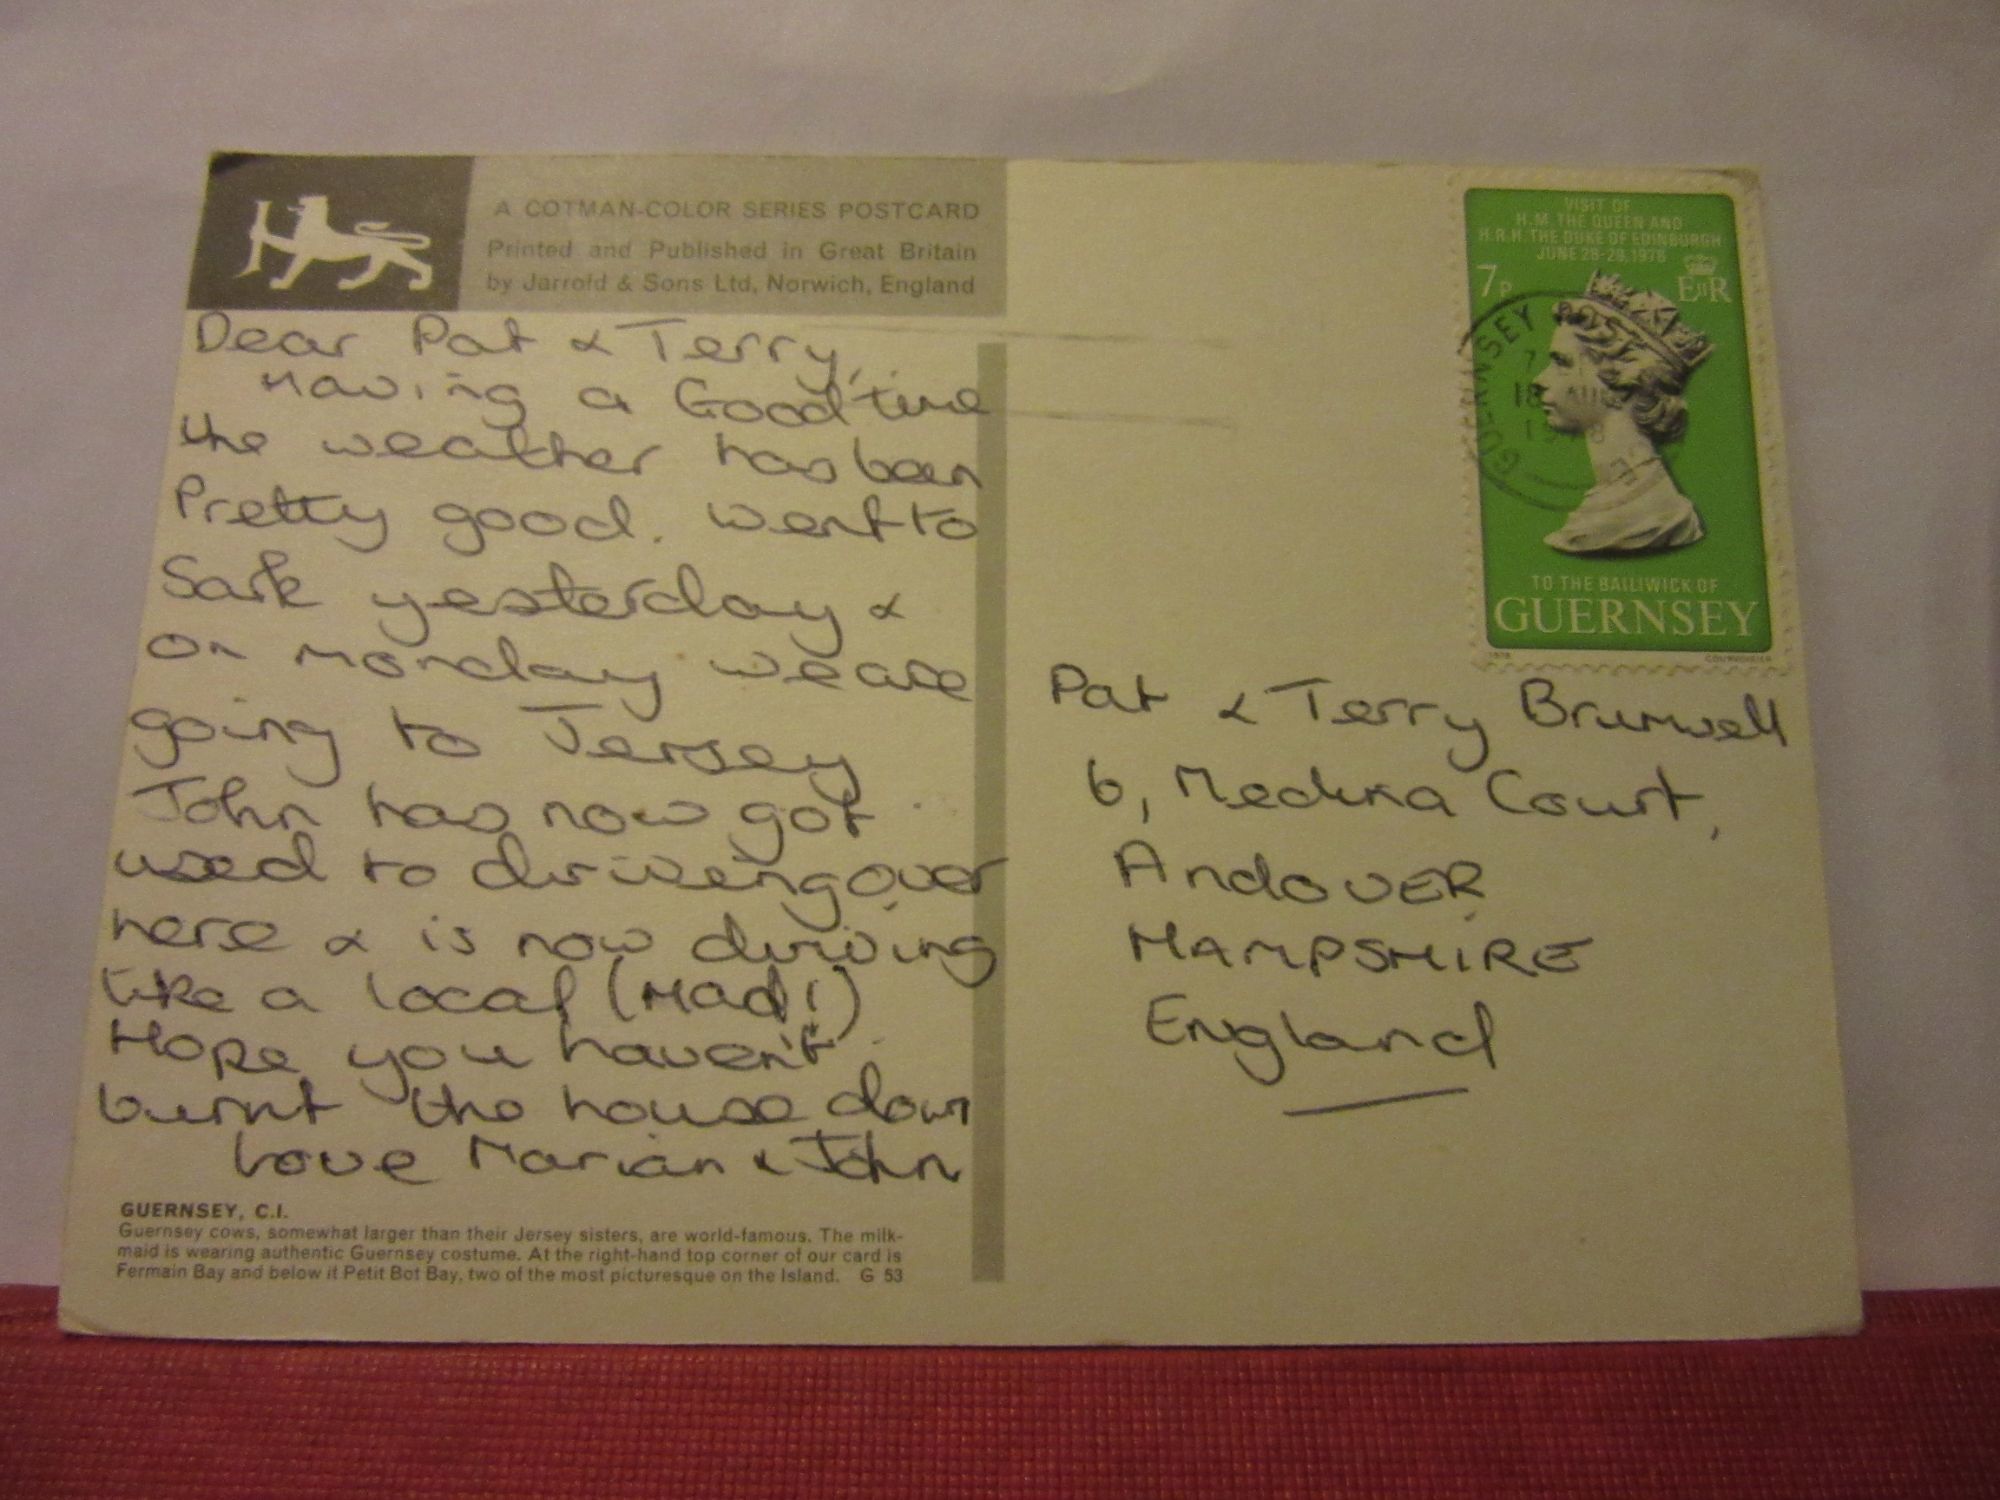 A COTMAN-COLOR SERIES POSTCARD
Printed and Published in Great Britain
by Jarrold & Sons Ltd, Norwich, England
Dear Pat & Terry,
Having a Good time
the weather has been
Pretty good. went to
Sark yesterday &
on monday we are
going to Jersey
John has now got
used to driving over
here & is now driving
like a local (Mad!)
Hope you haven't
burnt the house down
Love Marian & John
GUERNSEY, C.I.
Guernsey cows, somewhat larger than their Jersey sisters, are world-famous. The milk-
maid is wearing authentic Guernsey costume. At the right-hand top corner of our card is
Fermain Bay and below it Petit Bot Bay, two of the most picturesque on the Island. G 53
VISIT OF
H.M. THE QUEEN AND
H.R.H. THE DUKE OF EDINBURGH
JUNE 28-29, 1978
7P EIIR
GUERNSEY POST
18 AUG
1978
TO THE BAILIWICK OF
GUERNSEY
1978 COURVOISIER
Pat & Terry Brumwell
6, Medina Court,
AndoVER
HAMPSHIRE
England